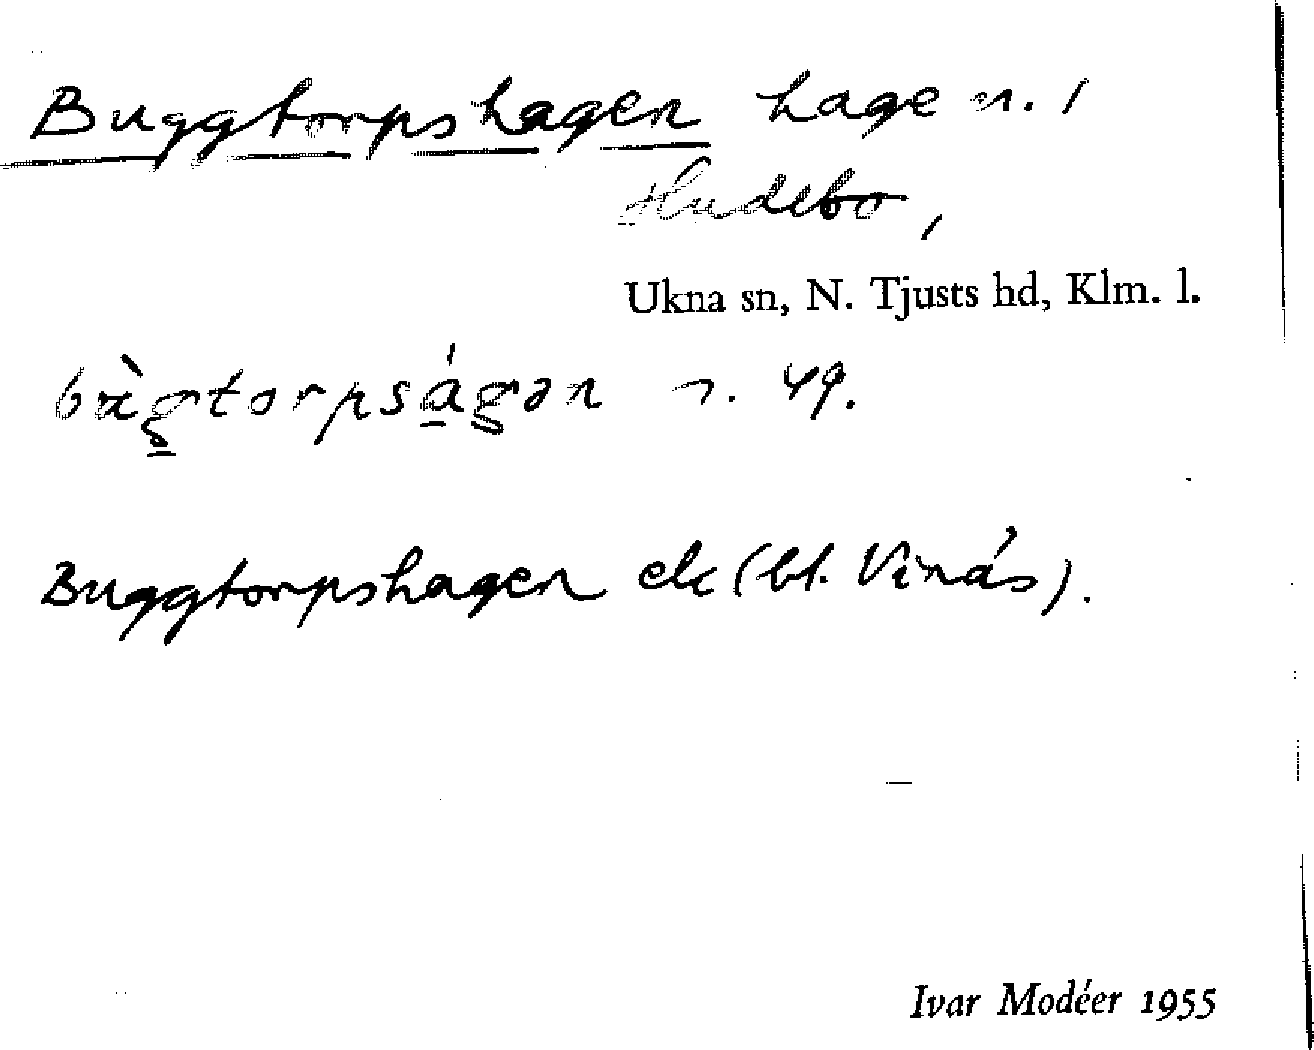 Buggtorpshagen hage n. 1
Hudebo,
Ukna sn, N. Tjusts hd, Klm. l.
n. 49.
Buggtorpshagen ek (bl. Vinås).
Ivar Modéer 1955